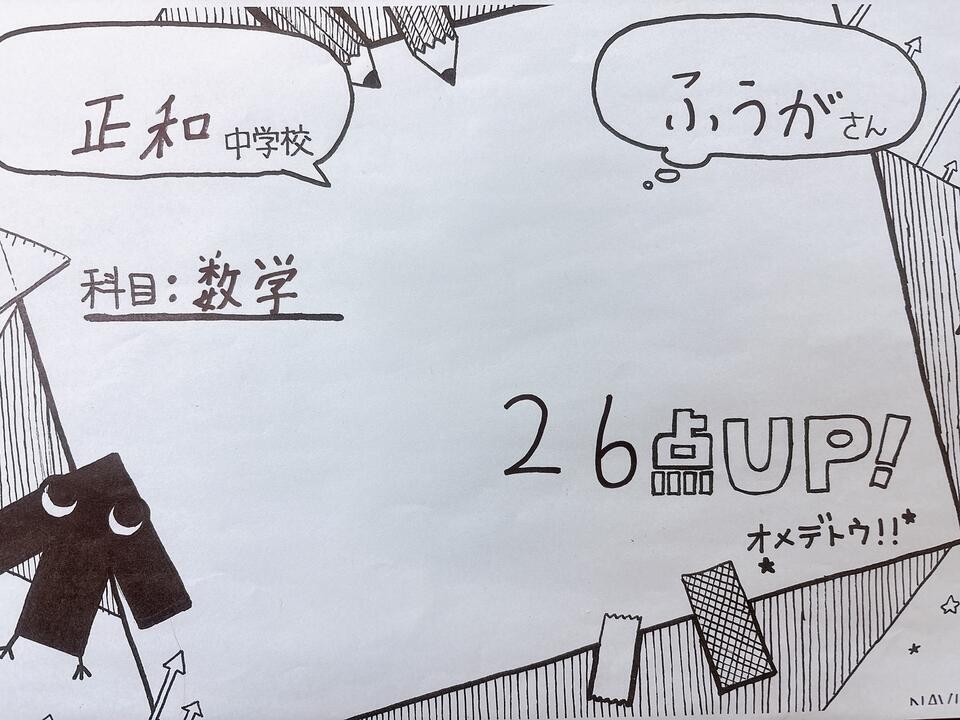 正和中学校
ふうがさん
科目:数学
26点UP!
オメデトウ!!